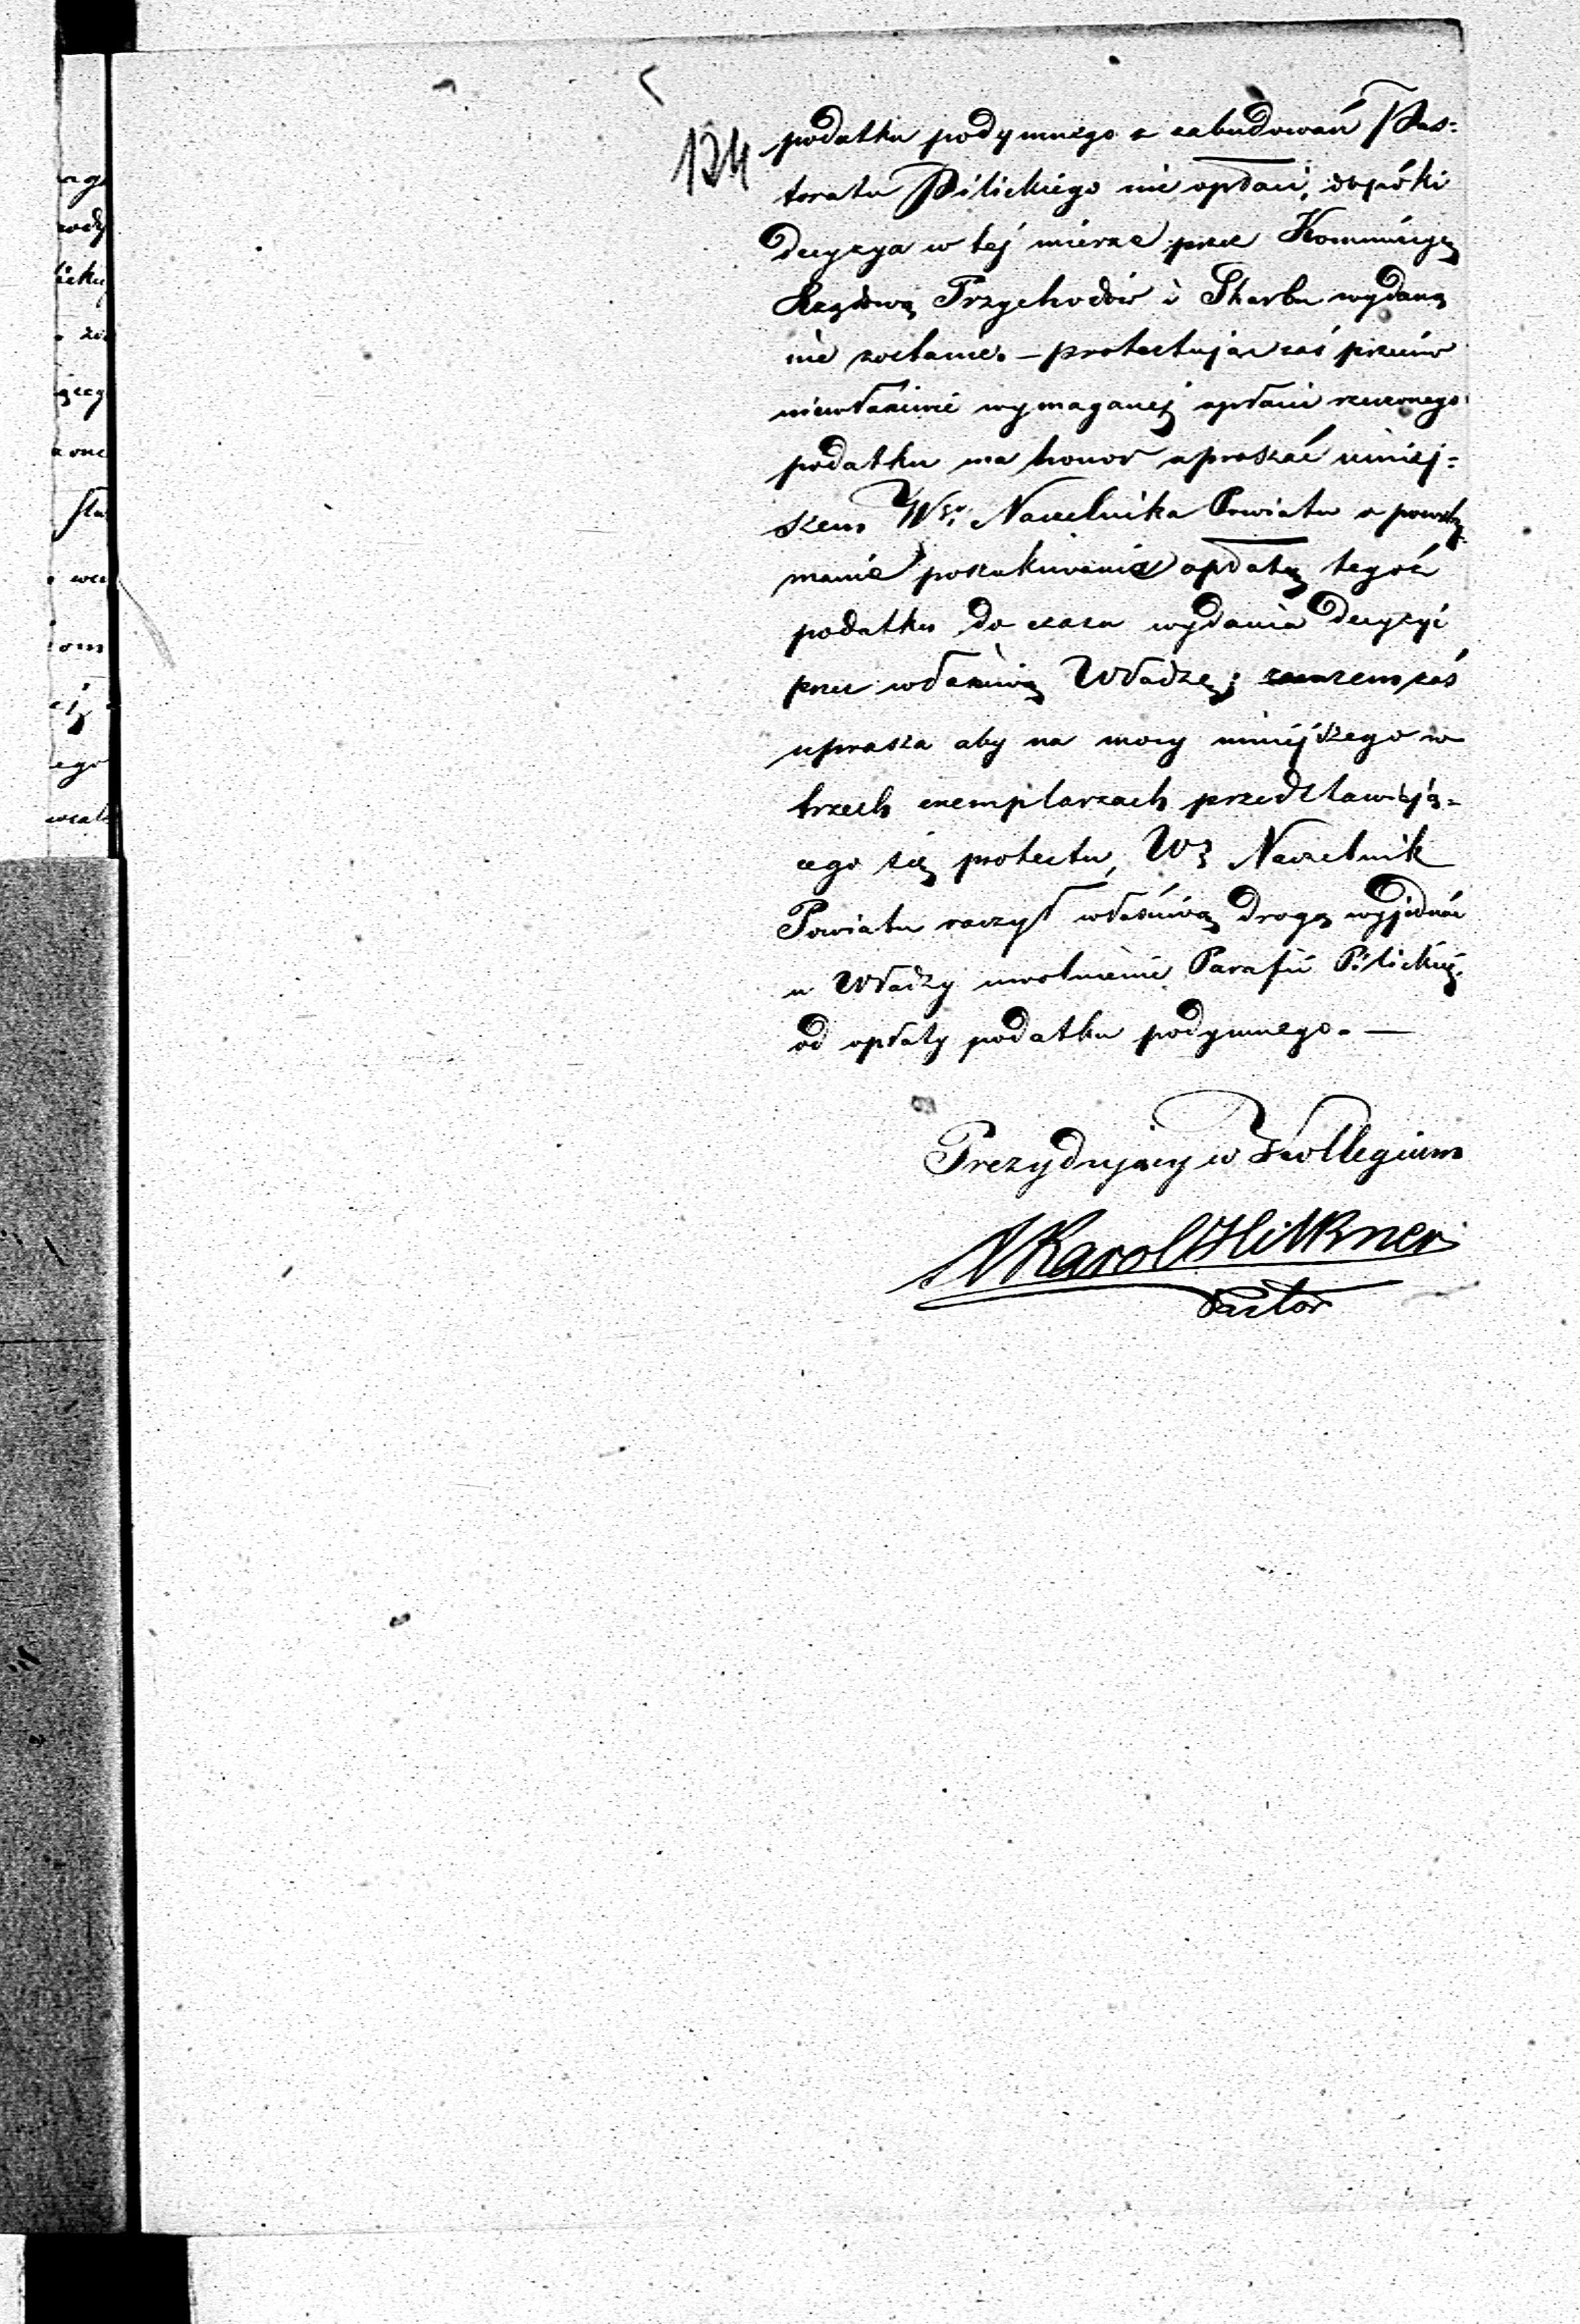 124
podatku podymnego z zabudowań Pas=
toratu Pilickiego nie opłaci, dopóki
Decyzya w tej mierze przez Kommissyę
Rządową Przychodów i Skarbu wydaną
nie zostanie. — protestując zaś przeciw
niewłaściwie wymaganej opłacie rzeczonego
podatku ma honor upraszać niniej=
szem WGo Naczelnika Powiatu o powstrzy=
manie poszukiwania opłaty tegoż
podatku do czasu wydania Decyzyi
przez właściwą Władzę; razem zaś
uprasza aby na mocy niniejszego w
trzech exemplarzach przedstawiają=
cego się protestu, W. Naczelnik
Powiatu raczył właściwą drogą wyjednać
u Władzy uwolnienie Parafii Pilickiej
od opłaty podatku podymnego. —
Prezydujący w Kollegium
Karol
Pastor